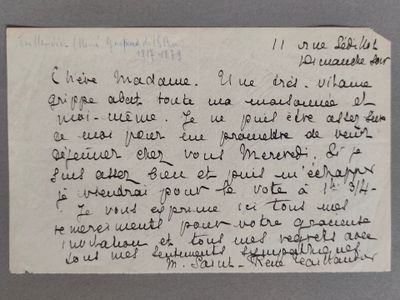 Taillandier (René Gaspard
1817-1879
11 rue Sédillot
Dimanche soir
Chère Madame. Une très vilaine
grippe abat toute ma maisonnée et
moi-même. Je ne puis être assez sûre
de moi pour me promettre de venir
déjeuner chez vous Mercredi. Si je
suis assez bien et puis m'échapper
je viendrai pour le vote à 1h 3/4-
Je vous exprime ici tous mes
remerciements pour votre gracieuse
invitation et tous mes regrets avec
tous mes sentiments sympathiques
M. Saint-René Taillandier